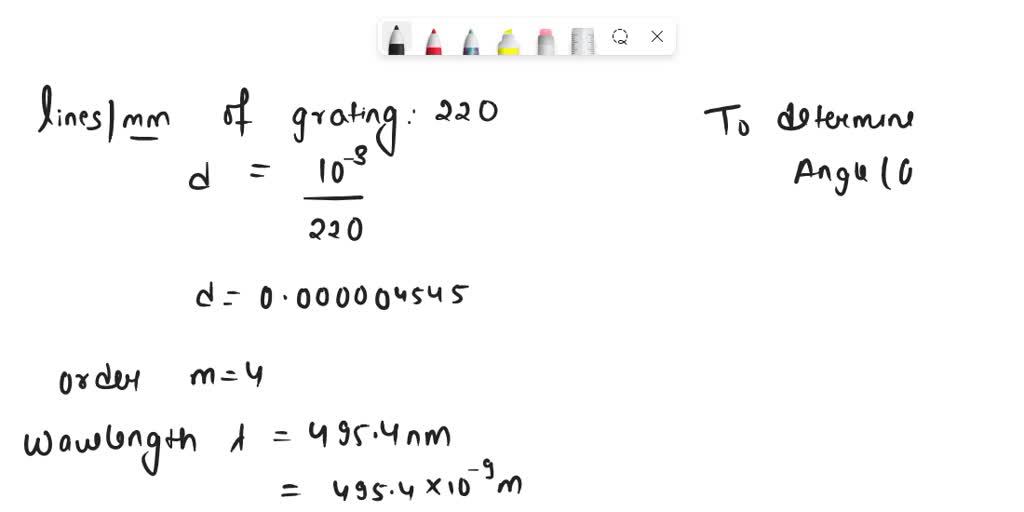 lines/mm of grating: 220
d = 10^-3 / 220
d = 0.000004545
order m=4
wavelength λ = 495.4 nm
= 495.4 × 10^-9 m
To determine
Angle (